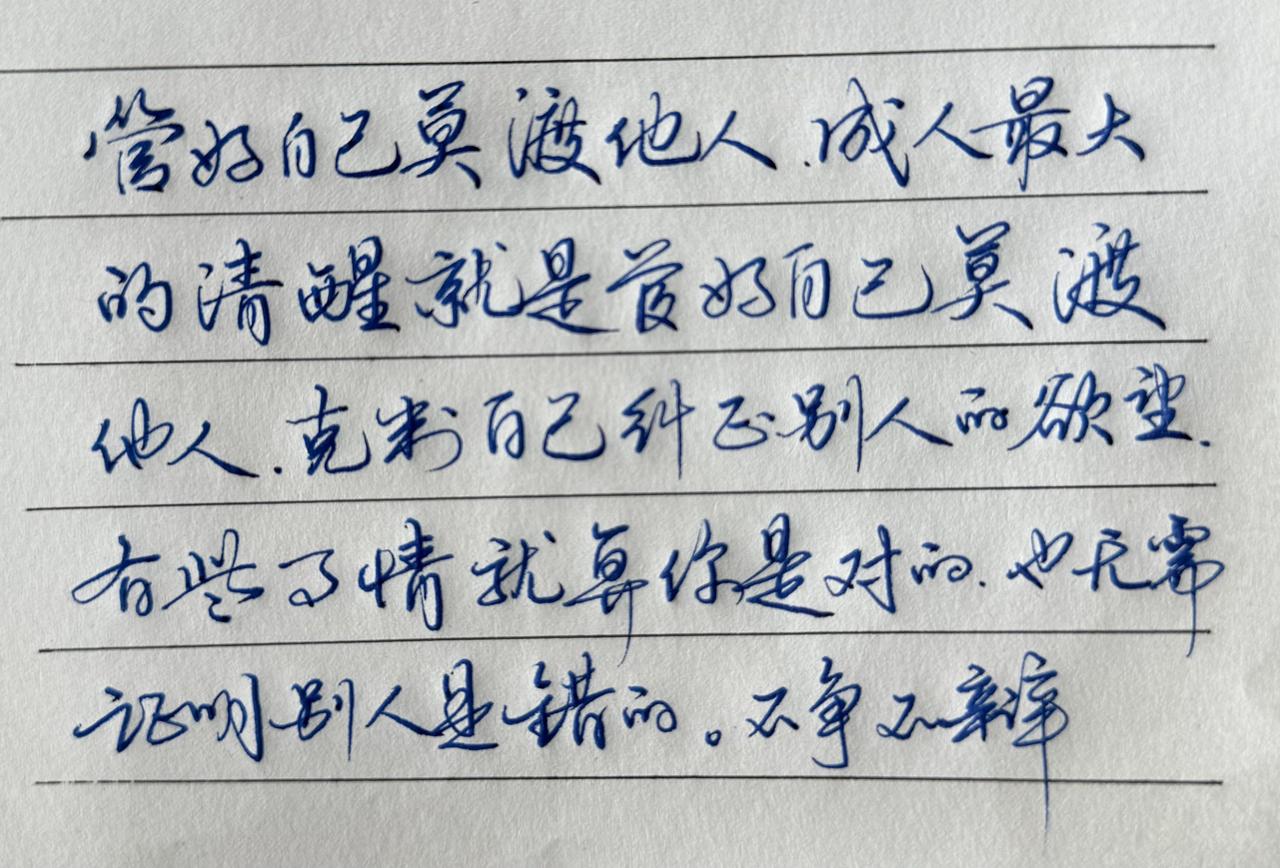 管好自己莫渡他人.成人最大
的清醒就是管好自己莫渡
他人.克制自己纠正别人的欲望.
有些事情就算你是对的.也无需
证明别人是错的。不争不辩